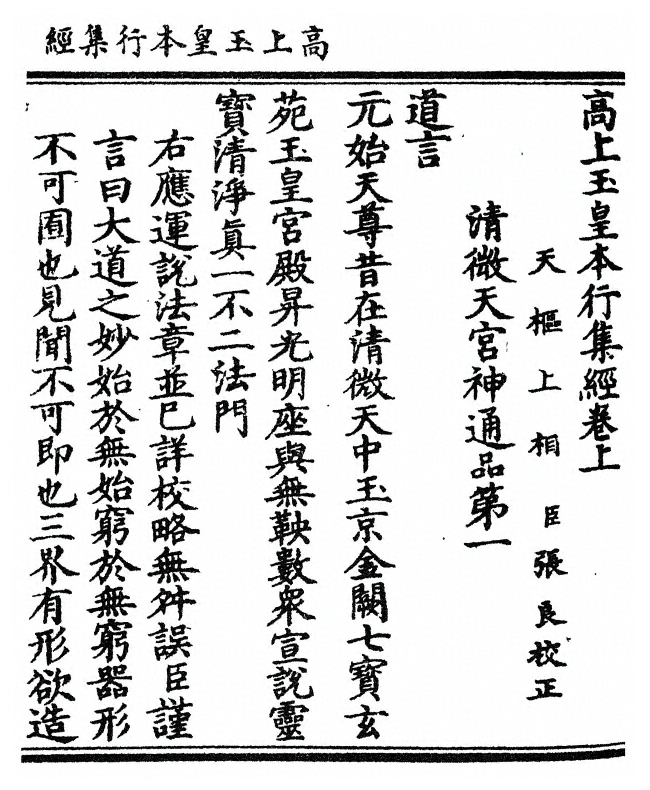 高上玉皇本行集經
高上玉皇本行集經卷上
天樞上相臣張良校正
清微天宮神通品第一
道言
元始天尊昔在清微天中玉京金闕七寶玄
苑玉皇宮殿昇光明座與無鞅數衆宣說靈
寶清淨眞一不二法門
右應運說法章並已詳校略無舛誤臣謹
言曰大道之妙始於無始窮於無窮器形
不可囿也見聞不可即也三界有形欲造